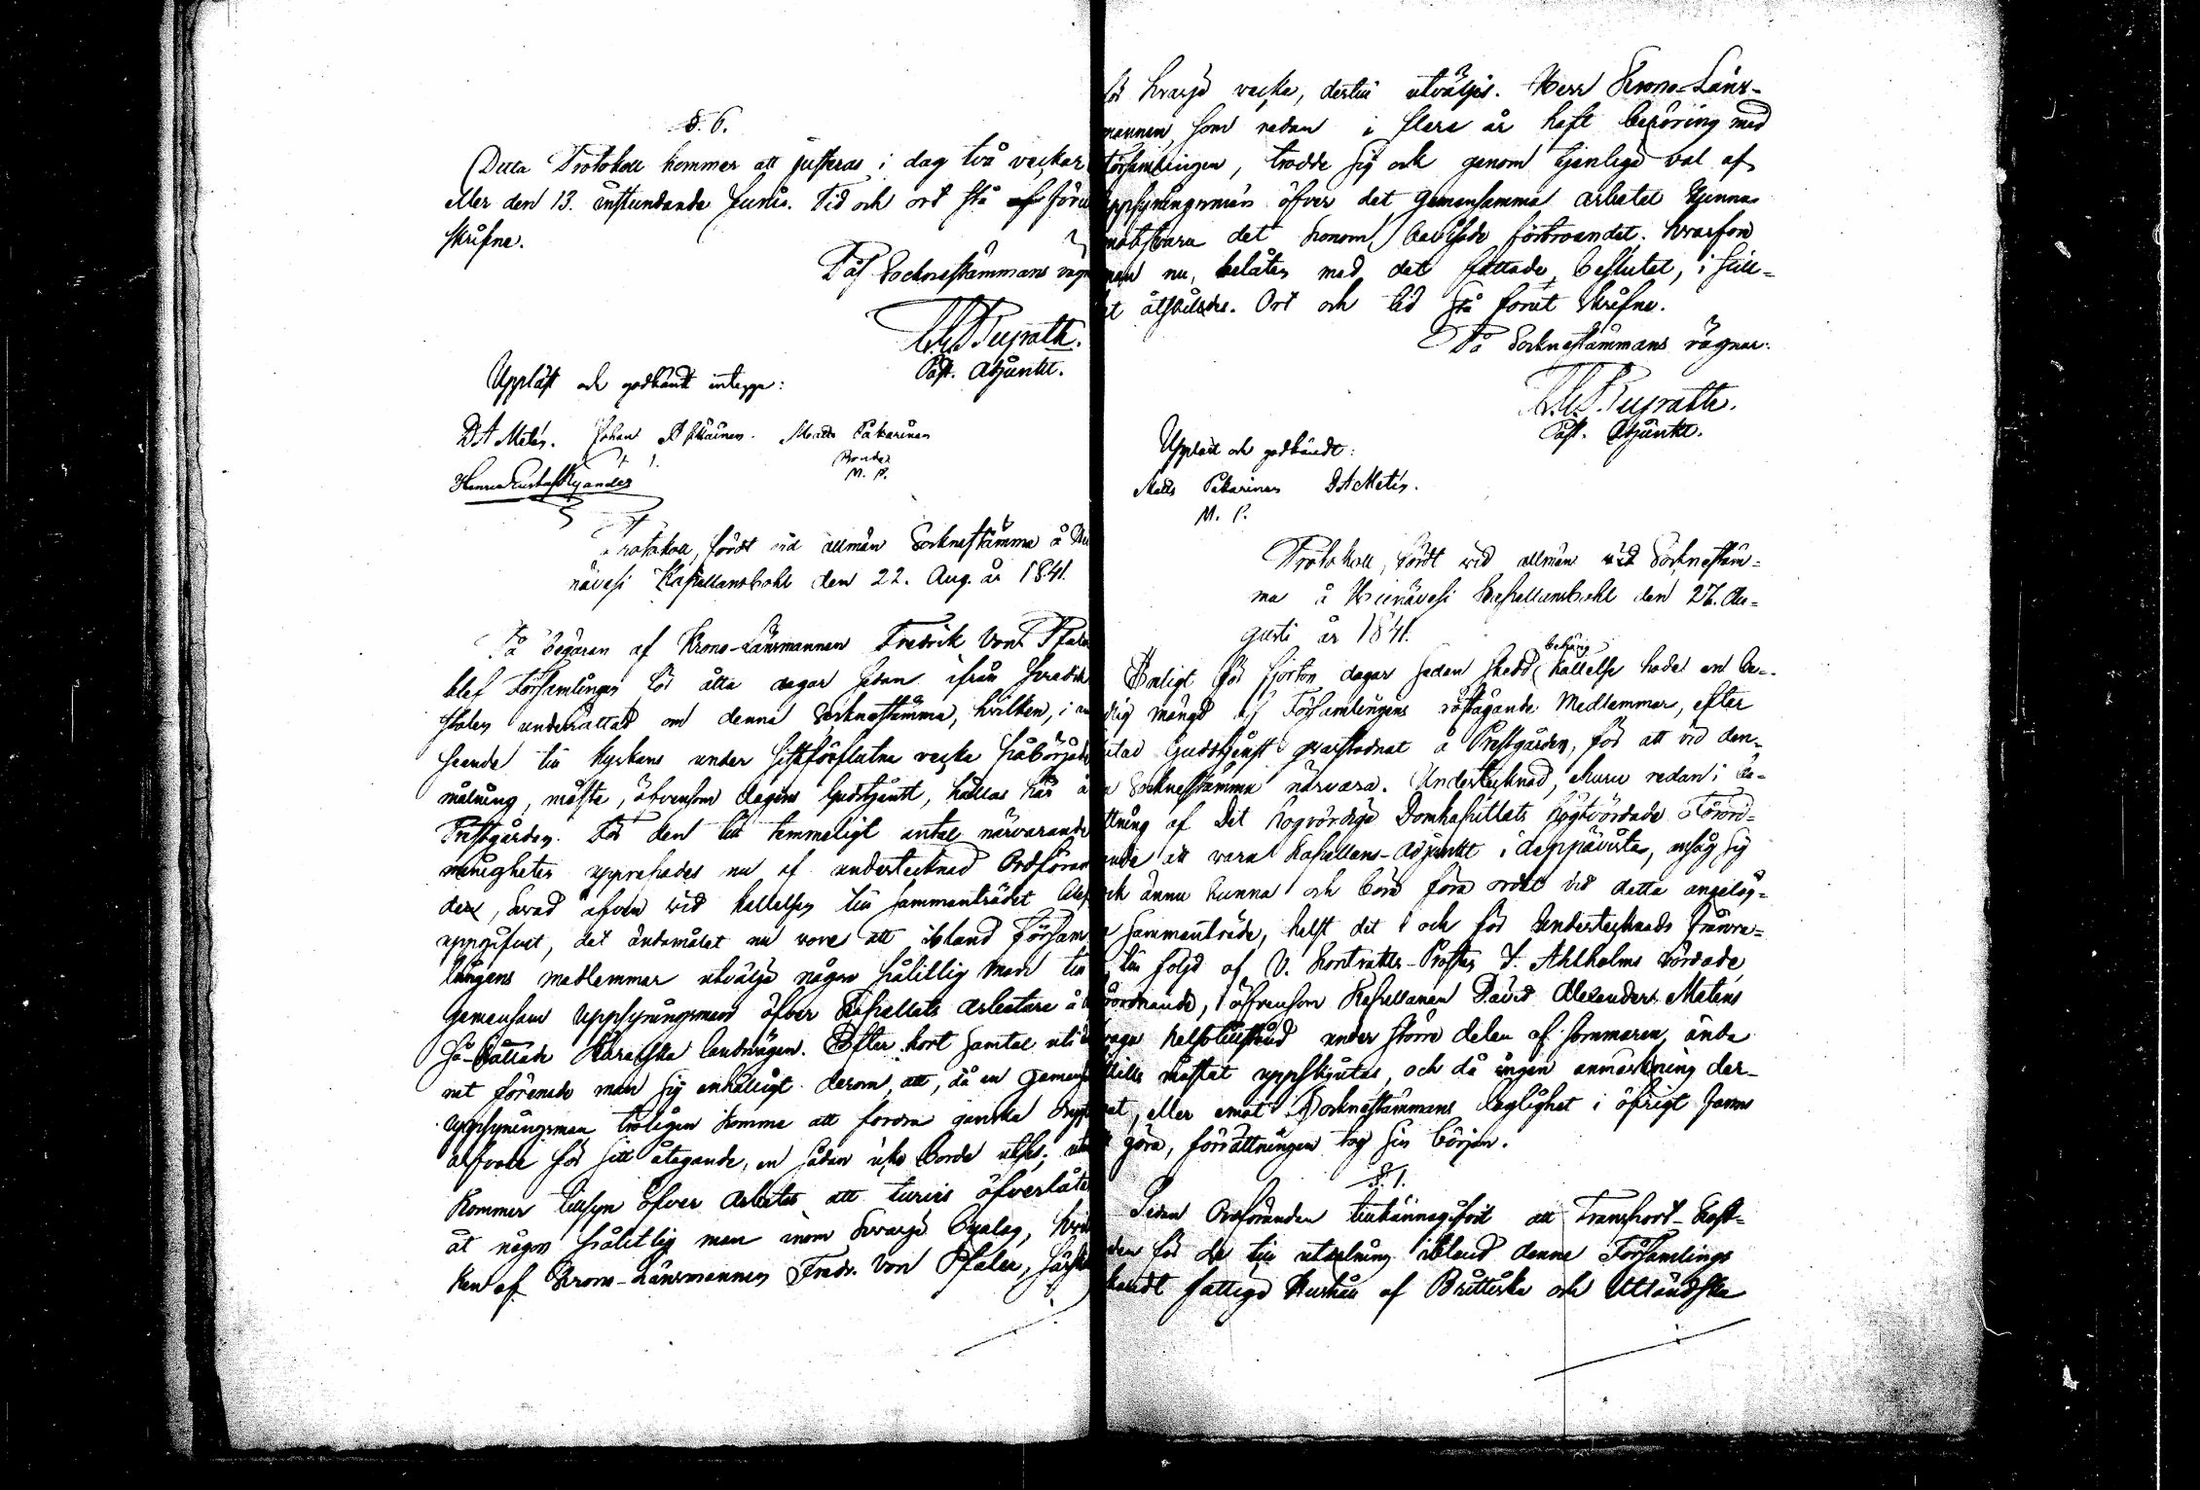 §. 6.
Detta Protokoll kommer att justeras i dag två veckar
eller den 13. instundande Junii. Tid och ort stå föru
skrifne.
På Socknestämmans vägn
Past. Adjunkt.
Uppläst och godkändt intygga:
D A Metén. Johan Matts Pakarinen
Bonde
M. P.
Henric Gustaf Kyander
Protokoll, fördt vid allmän Socknestämma å
nävesi Kapellansbohl den 22. Aug. år 1841.
På begäran af Krono-Länsmannen Fredrik von Pfaler
blef Församlingen för åtta dagar sedan ifrån Predik
stolen underrättad om denna Socknestämma, hvilken, i an
seende till kyrkans under sistförflutne vecka påbörjade
målning, måste, äfvensom dagens Gudstjänst, hållas här å
Prestgården. För den till temmeligt antal närvarande
menigheten upprepades nu af undertecknad Ordföran
den, hvad äfven vid kallelsen till sammanträdet blef
uppgifvet, det ändamålet nu vore att ibland Försam
lingens medlemmar utvälja någon pålitlig man till
gemensam Uppsyningsman öfver Kapellets arbetare å
så-kallade Karelska landsvägen. Efter kort samtal
net förenade man sig enhälligt derom, att, då en gemens
uppsyningsman troligen komme att fordra ganska dryg
arfvode för sitt åtagande, en sådan icke borde utses; utan
kommer tillsyn öfver arbetet att turvis öfverlåtas
åt någon pålitlig man inom hvarje byalag, hvil
ken af Krono-Länsmannen Fredr. von Pfaler, särskildt
för hvarje vecka, dertill utväljes. Herr Krono-Läns-
mannen, som redan i flera år haft beröring med
Församlingen, trodde sig ock genom tjenlige val af
uppsyningsmän öfver det gemensamma arbetet kunna
motsvara det honom bevisade förtroendet; hvarföre
man nu, belåten med det fattade beslutet, i still-
het åtskildes. Ort och tid stå förut skrifne.
På Socknestämmans vägnar:
Past. Adjunkt.
Uppläst och godkändt:
Matts Pakarinen D A Metén.
M. P.
Protokoll, fördt vid allmän Socknestäm-
ma å Heinävesi Kapellansbohl den 27. Au-
gusti år 1841.
behörig
Enligt för fjorton dagar sedan skedd kallelse hade en be-
dlig mängd af Församlingens röstägande Medlemmar, efter
slutad Gudstjenst qvarstadnat å Prestgården, för att vid den-
na Socknestämma närvara. Undertecknad, ehuru redan i be-
ttning af Det Högvördige Domkapitlets högtvördade Förord-
nande att vara Kapellans-Adjunkt i Jäppävirta, ansåg sig
ock ännu kunna och böra föra ordet vid detta angeläg-
na sammanträde, helst det i och för Undertecknads frånva-
till följd af V. Kontrakts-Prosten J. Ahlholms vördade
förordnande, äfvensom Kapellanen David Alexander Metens
svaga helsotillstånd under större delen af sommaren, ända
hittills måstat uppskjutas, och då ingen anmärkning der-
mot, eller emot Socknestämmans laglighet i öfrigt fanns
göra, förrättningen tog sin början.
§. 1.
Sedan Ordföranden tillkännagifvit att Transport-Kost-
naden för de till utdelning ibland denna Församlings
kändt fattige Hushåll af Brittiska och Utländska